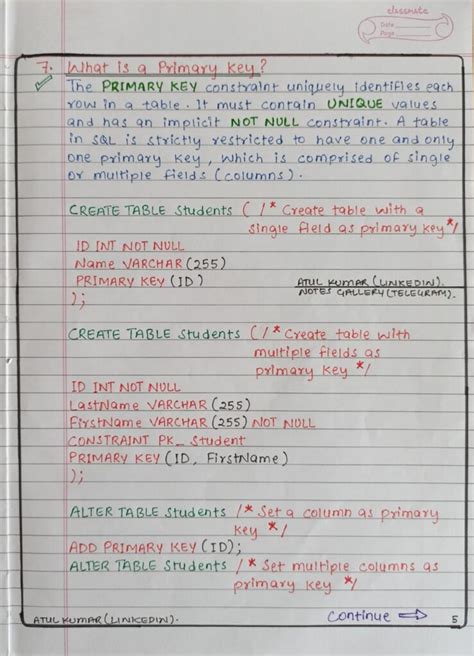 classmate
Date
Page
7. What is a Primary Key?
The PRIMARY KEY constraint uniquely identifies each
row in a table. It must contain UNIQUE values
and has an implicit NOT NULL constraint. A table
in SQL is strictly restricted to have one and only
one primary key, which is comprised of single
or multiple fields (columns).
CREATE TABLE Students ( /* Create table with a
single field as primary key */
ID INT NOT NULL
Name VARCHAR (255)
PRIMARY KEY (ID)
);
ATUL KUMAR (LINKEDIN).
NOTES GALLERY (TELEGRAM).
CREATE TABLE Students ( /* Create table with
multiple fields as
primary key */
ID INT NOT NULL
LastName VARCHAR (255)
FirstName VARCHAR (255) NOT NULL
CONSTRAINT PK_Student
PRIMARY KEY (ID, FirstName)
);
ALTER TABLE Students /* Set a column as primary
key */
ADD PRIMARY KEY (ID);
ALTER TABLE Students /* Set multiple columns as
primary key */
Continue ⇒
ATUL KUMAR (LINKEDIN).
5